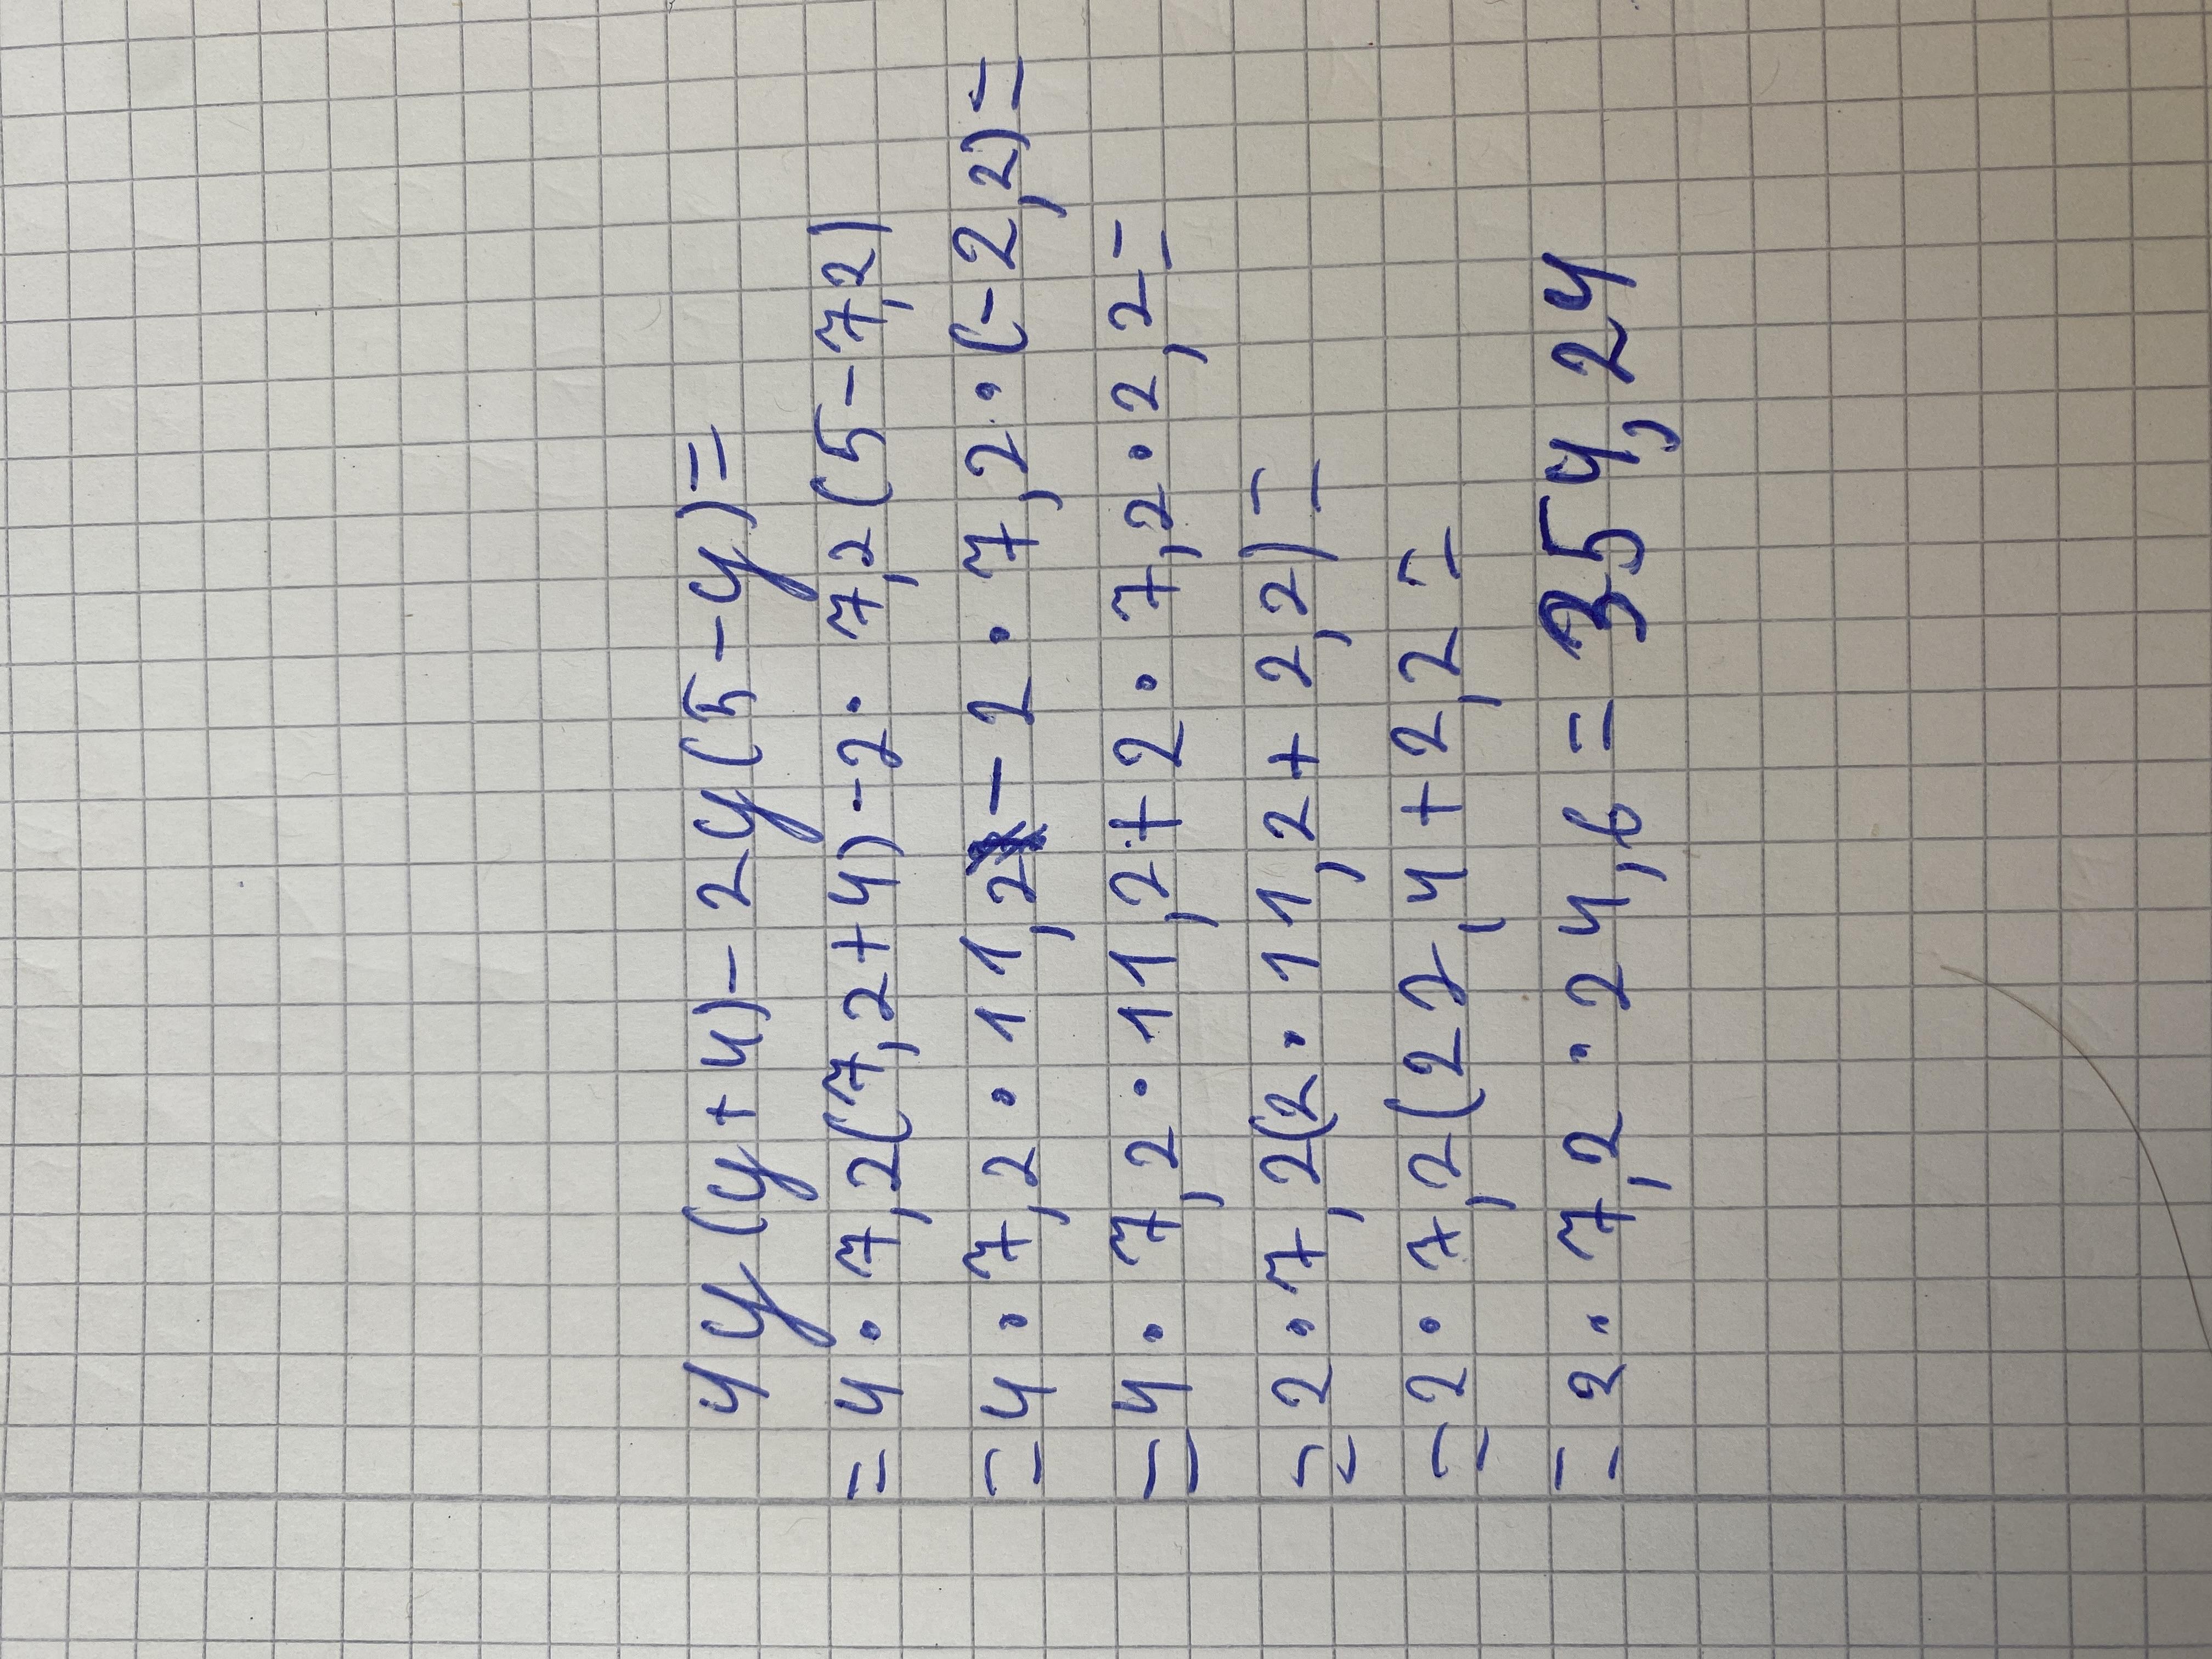 4y(y+4)-2y(5-y)=
=4·7,2(7,2+4)-2·7,2(5-7,2)
=4·7,2·11,2-2·7,2·(-2,2)=
=4·7,2·11,2+2·7,2·2,2=
=2·7,2(2·11,2+2,2)=
=2·7,2(22,4+2,2=
=2·7,2·24,6=354,24